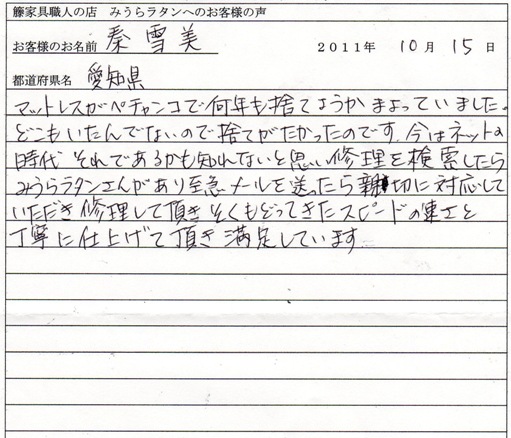 籐家具職人の店　みうらラタンへのお客様の声
お客様のお名前　秦 雪美　2011年 10月 15日
都道府県名　愛知県
マットレスがペチャンコで何年も捨てようかまよっていました。
どこもいたんでないので捨てがたかったのです。今はネットの
時代 それであるかも知れないと思い修理を検索したら
みうらラタンさんがあり至急メールを送ったら親切に対応して
いただき修理して頂きそくもどってきたスピードの速さと
丁寧に仕上げて頂き満足しています